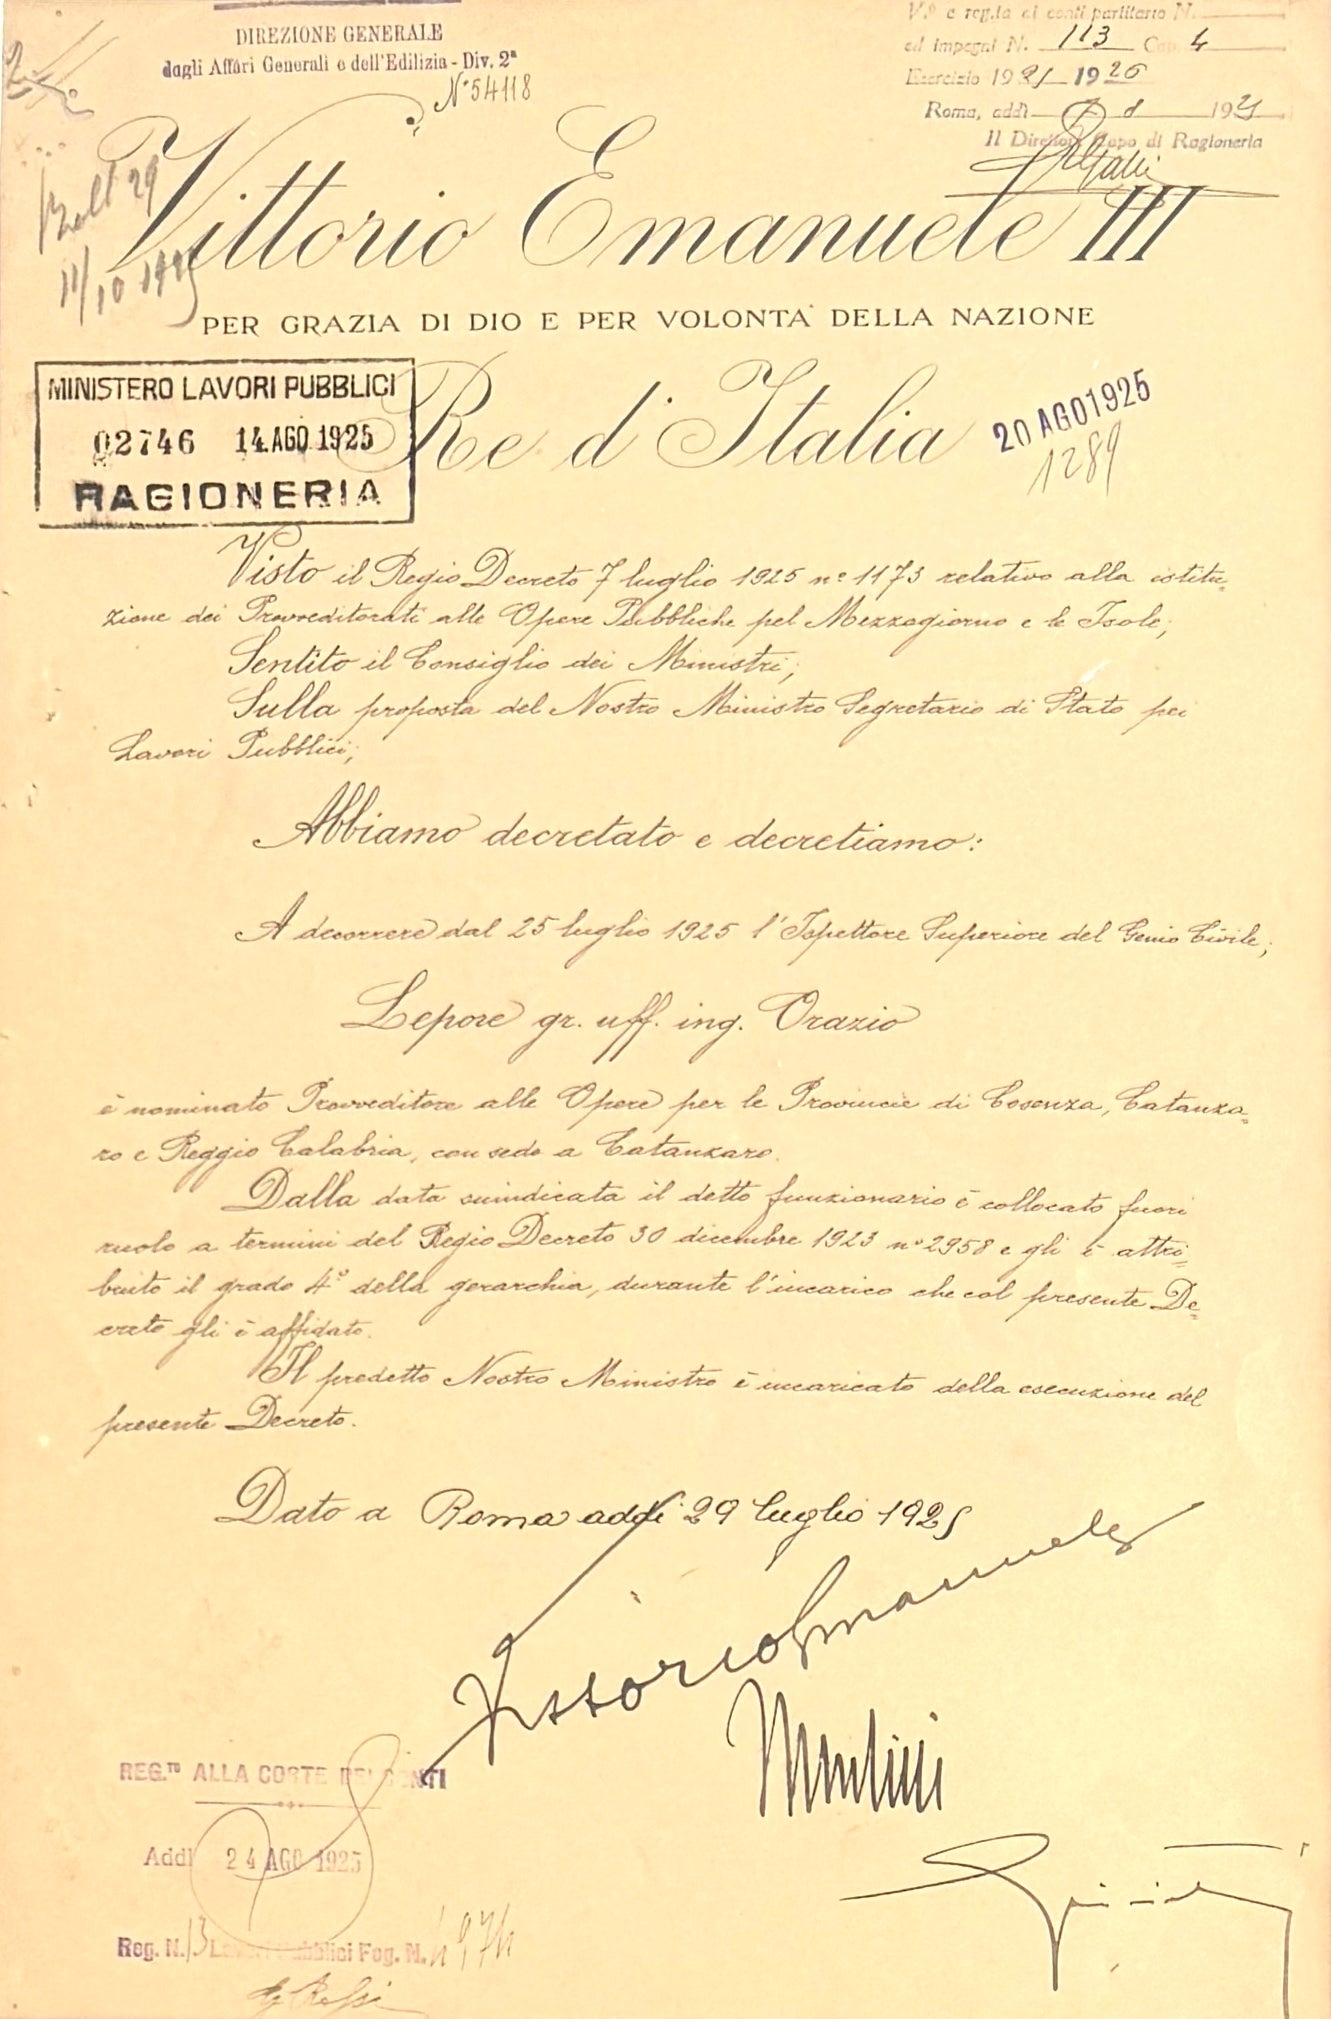 DIREZIONE GENERALE
dagli Affari Generali e dell'Edilizia - Div. 2ª
N° 54118
V.° e reg.to ai conti partitario N.
ed impegni N. 113 Cap. 4
Esercizio 1925 1926
Roma, addì 8 1925
Il Direttore Capo di Ragioneria
Boll 29
11/10 1925
Vittorio Emanuele III
PER GRAZIA DI DIO E PER VOLONTA' DELLA NAZIONE
Re d'Italia
MINISTERO LAVORI PUBBLICI
02746 14 AGO 1925
RAGIONERIA
20 AGO 1925
1289
Visto il Regio Decreto 7 luglio 1925 n° 1173 relativo alla istitu=
zione dei Provveditorati alle Opere Pubbliche pel Mezzogiorno e le Isole;
Sentito il Consiglio dei Ministri;
Sulla proposta del Nostro Ministro Segretario di Stato pei
Lavori Pubblici;
Abbiamo decretato e decretiamo:
A decorrere dal 25 luglio 1925 l'Ispettore Superiore del Genio Civile,
Lepore gr. uff. ing. Orazio
è nominato Provveditore alle Opere per le Provincie di Cosenza, Catanza=
ro e Reggio Calabria, con sede a Catanzaro.
Dalla data suindicata il detto funzionario è collocato fuori
ruolo a termini del Regio Decreto 30 dicembre 1923 n° 2958 e gli è attri=
buito il grado 4° della gerarchia, durante l'incarico che col presente De=
creto gli è affidato.
Il predetto Nostro Ministro è incaricato della esecuzione del
presente Decreto.
Dato a Roma addì 29 luglio 1925
Vittorio Emanuele
Mussolini
REG.TO ALLA CORTE DEI CONTI
Addì 24 AGO 1925
Reg. N. 13 Lavori Pubblici Fog. N. 4974